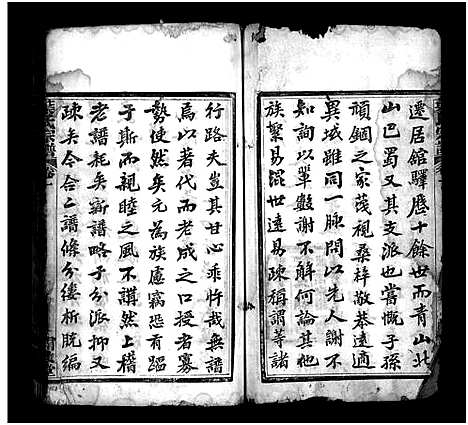 遷居館驛歷十餘世而青山北
山巴蜀又其支派也嘗慨子孫
頑錮之家蔑視桑梓敬恭遠適
異域雖同一脉問以先人謝不
知詢以單數謝不解何論其他
族繁易混世遠易疎稱謂等諸
行路夫豈其甘心乖忤哉無譜
焉以著代而老成之口授者寡
勢使然矣元為族慮竊恐有蹈
于斯而親睦之風不講然上稽
老譜耗矣新譜略子分派抑又
疎矣今合二譜條分縷析脘編